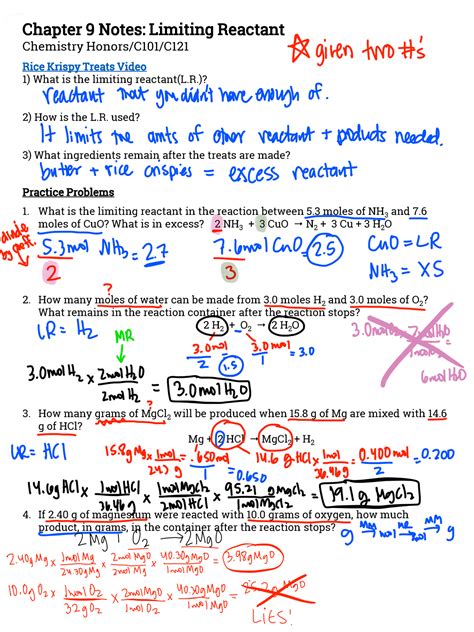 Chapter 9 Notes: Limiting Reactant
Chemistry Honors/C101/C121
☆ given two #'s
Rice Krispy Treats Video
1) What is the limiting reactant(L.R.)?
reactant that you didn't have enough of.
2) How is the L.R. used?
It limits the amts of other reactant + products needed.
3) What ingredients remain after the treats are made?
butter + rice crispies = excess reactant
Practice Problems
1. What is the limiting reactant in the reaction between 5.3 moles of NH3 and 7.6
moles of CuO? What is in excess? 2 NH3 + 3 CuO → N2 + 3 Cu + 3 H2O
divide by coeff.
5.3mol NH3 = 2.7
2
7.6mol CuO = 2.5
3
CuO = LR
NH3 = XS
?
2. How many moles of water can be made from 3.0 moles H2 and 3.0 moles of O2?
What remains in the reaction container after the reaction stops?
LR = H2
2 H2 + O2 → 2 H2O
MR
3.0mol
2
1.5
3.0mol
1
= 3.0
3.0mol O2 x 2mol H2O
1mol O2
6mol H2O
3.0mol H2 x 2mol H2O
2mol H2
= 3.0mol H2O
?
3. How many grams of MgCl2 will be produced when 15.8 g of Mg are mixed with 14.6
g of HCl?
Mg + 2 HCl → MgCl2 + H2
LR= HCl
15.8g Mg x 1mol
24.3g
= .650mol
1
= 0.650
14.6 g HCl x 1mol
36.46g
= 0.400 mol
2
= 0.200
14.6g HCl x 1mol HCl
36.46 g
x 1mol MgCl2
2mol HCl
x 95.21 g MgCl2
1mol MgCl2
= 19.1g MgCl2
4. If 2.40 g of magnesium were reacted with 10.0 grams of oxygen, how much
product, in grams, is in the container after the reaction stops?
2 Mg + O2 → 2 MgO
g → mol → mol → g
MR
MM
2.40g Mg x 1mol Mg
24.30g Mg
x 2mol MgO
2mol Mg
x 40.30g MgO
1mol MgO
= 3.98g MgO
10.0g O2 x 1mol O2
32g O2
x 2mol MgO
1mol O2
x 40.30g MgO
1mol MgO
=
LIES!